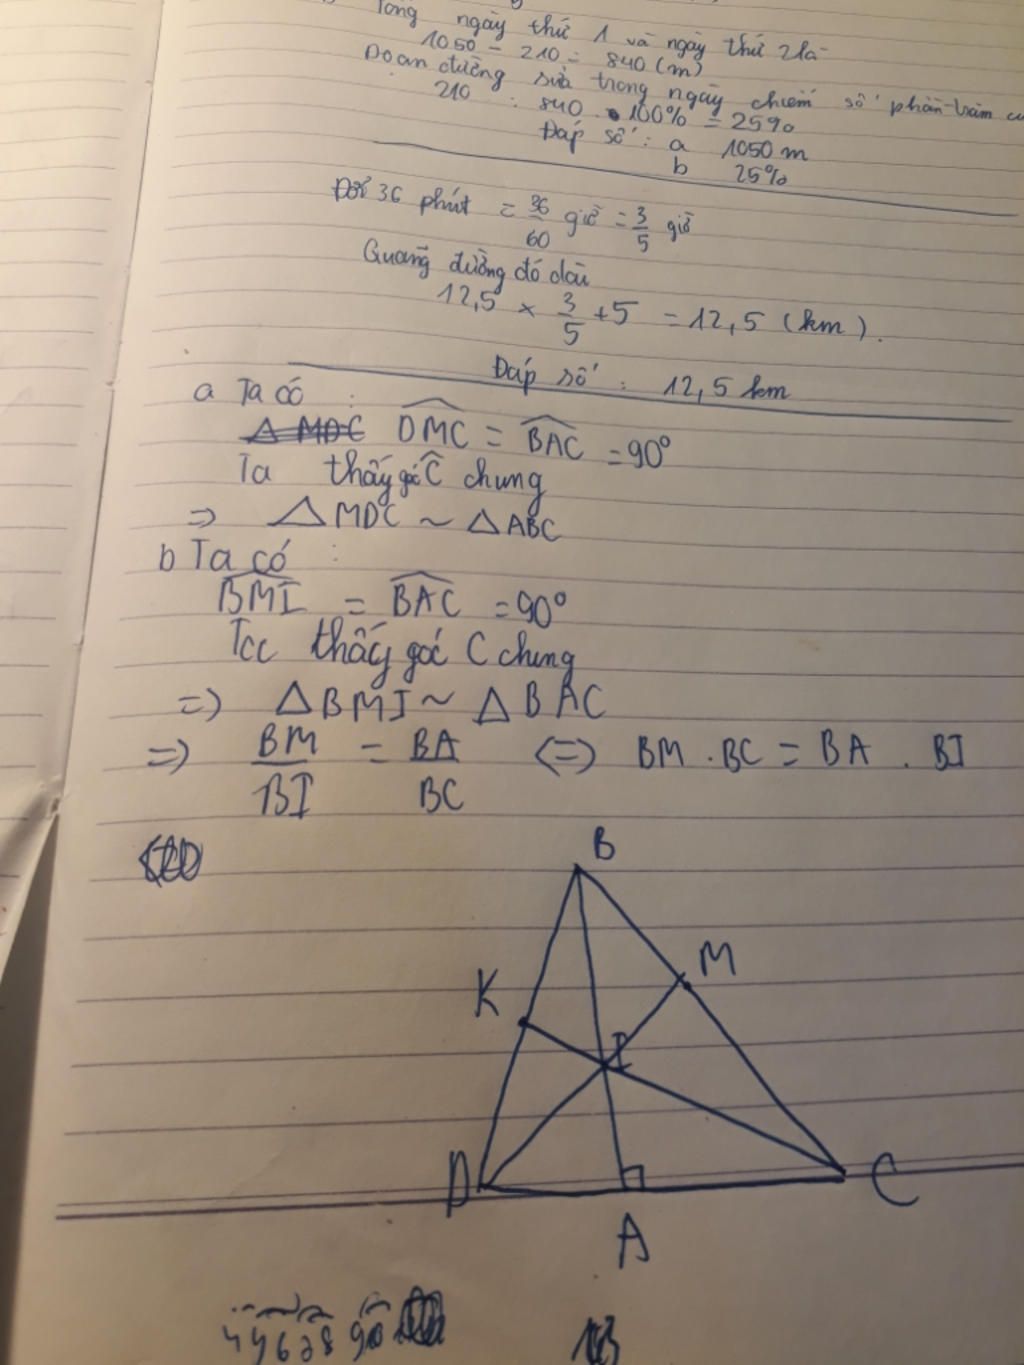 Tổng ngày thứ 1 và ngày thứ 2 là
1050 - 210 = 840 (m)
Đoạn đường sửa trong ngày chiếm số phần trăm
210 : 840 . 100% = 25%
Đáp số : a 1050 m
b 25%
Đổi 36 phút = 36/60 giờ = 3/5 giờ
Quãng đường đó dài
12,5 × 3/5 + 5 = 12,5 (km).
Đáp số : 12,5 km
a Ta có :
DMC = BAC = 90°
Ta thấy góc C chung
=> △ MDC ~ △ ABC
b Ta có :
BMI = BAC = 90°
Ta thấy góc C chung
=> △ BMI ~ △ BAC
=> BM/BI = BA/BC <=> BM . BC = BA . BI
B
M
K
I
D
C
A